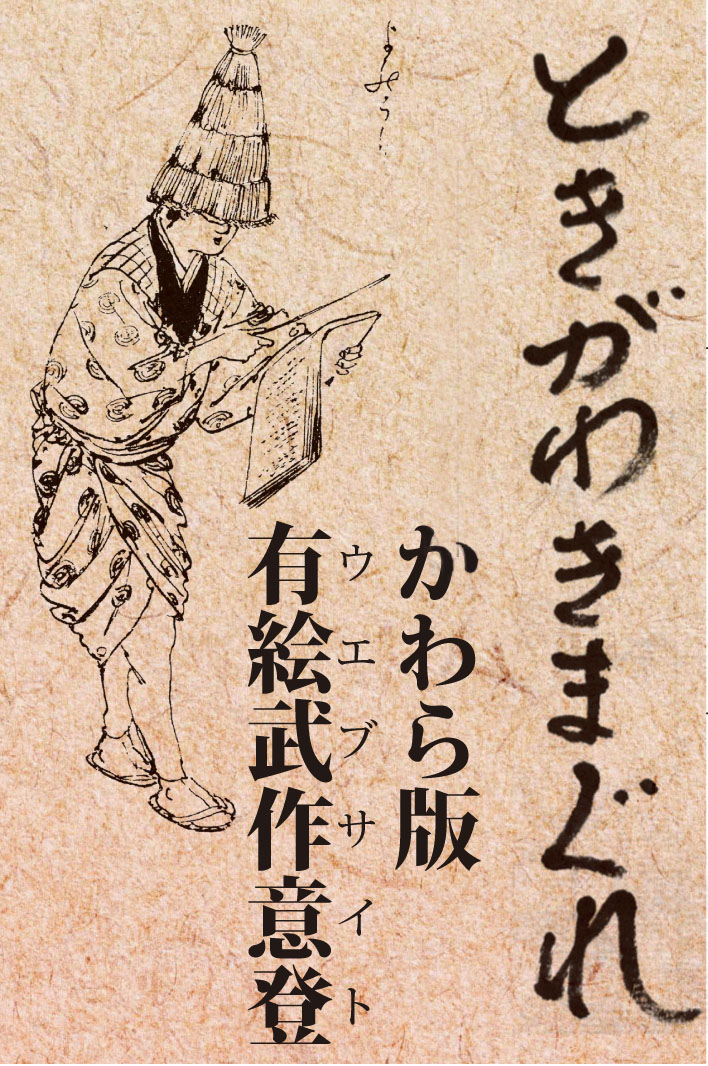 ときがわきまぐれ
かわら版
有絵武作意登
ウエブサイト